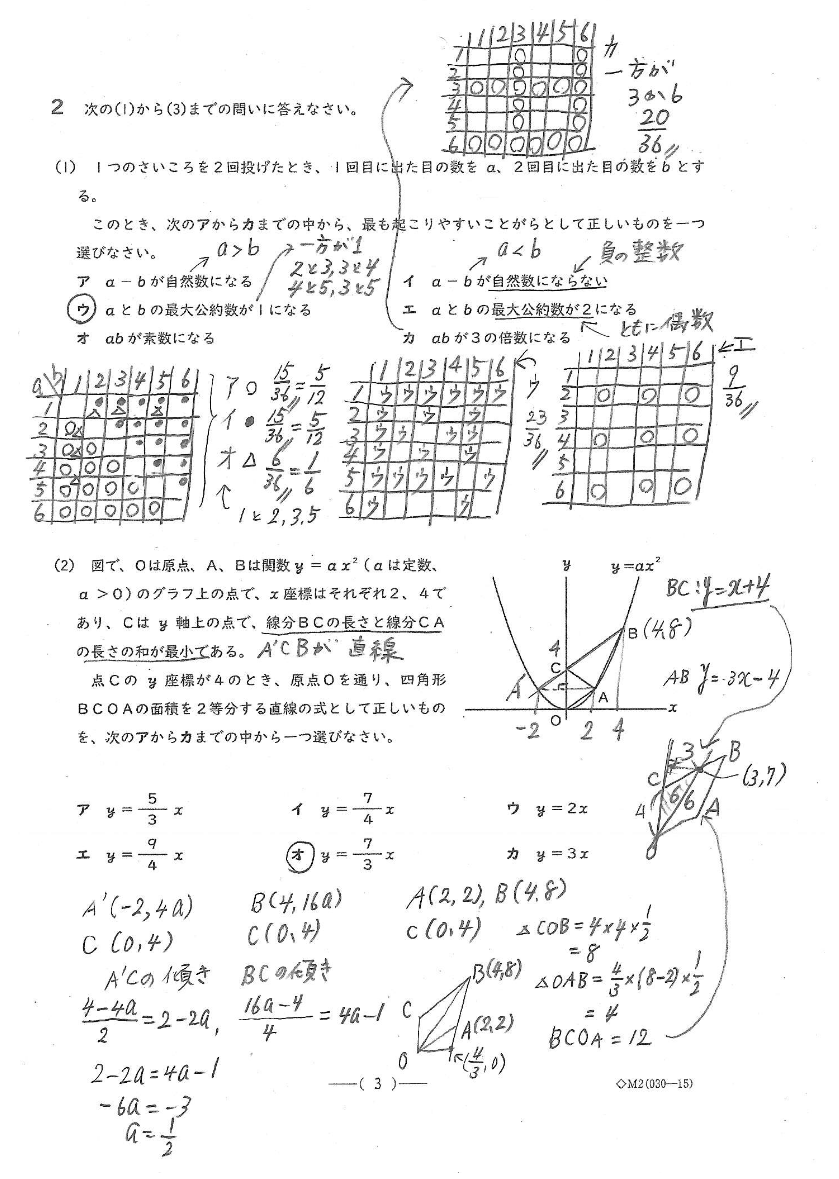 1 2 3 4 5 6
1 ○ ○
2 ○ ○
3 ○ ○ ○ ○ ○ ○
4 ○ ○
5 ○ ○
6 ○ ○ ○ ○ ○ ○
カ
一方が
3か6
20
36 〃
2 次の(1)から(3)までの問いに答えなさい。
(1) 1つのさいころを2回投げたとき、1回目に出た目の数を a、2回目に出た目の数を b とす
る。
このとき、次のアからカまでの中から、最も起こりやすいことがらとして正しいものを一つ
選びなさい。
a>b
一方が1
2と3,3と4
4と5,3と5
a<b
負の整数
ア a−bが自然数になる
イ a−bが自然数にならない
ウ aとbの最大公約数が1になる
エ aとbの最大公約数が2になる
ともに偶数
オ abが素数になる
カ abが3の倍数になる
a b 1 2 3 4 5 6
1
2
3
4
5
6
ア ○ 15/36 = 5/12
イ ● 15/36 = 5/12
オ △ 6/36 = 1/6
1と2,3,5
1 2 3 4 5 6
1 ウ ウ ウ ウ ウ ウ
2 ウ ウ ウ
3 ウ ウ ウ ウ
4 ウ ウ ウ
5 ウ ウ ウ ウ ウ
6 ウ ウ
ウ
23
36 〃
1 2 3 4 5 6
1
2 ○ ○ ○
3
4 ○ ○ ○
5
6 ○ ○ ○
←エ
9
36 〃
(2) 図で、Oは原点、A、Bは関数 y=ax²(aは定数、
a>0)のグラフ上の点で、x座標はそれぞれ2、4で
あり、Cは y 軸上の点で、線分BCの長さと線分CA
の長さの和が最小である。 A'CBが 直線
点Cの y 座標が4のとき、原点Oを通り、四角形
BCOAの面積を2等分する直線の式として正しいもの
を、次のアからカまでの中から一つ選びなさい。
y
y=ax²
B(4,8)
4
C
A'
A
-2
O
2 4
x
BC:y=x+4
AB y=3x-4
3
B
C
(3,7)
4
6 6
A
O
ア y=5/3 x
イ y=7/4 x
ウ y=2x
エ y=9/4 x
オ y=7/3 x
カ y=3x
A'(-2,4a)
C(0,4)
A'Cの傾き
4-4a/2 = 2-2a,
2-2a=4a-1
-6a=-3
a=1/2
B(4,16a)
C(0,4)
BCの傾き
16a-4/4 = 4a-1
A(2,2), B(4,8)
C(0,4)
△COB=4×4×1/2
=8
△OAB=4/3×(8-2)×1/2
=4
BCOA=12
B(4,8)
C
A(2,2)
O
(4/3,0)
―( 3 )―
◇M2(030―15)